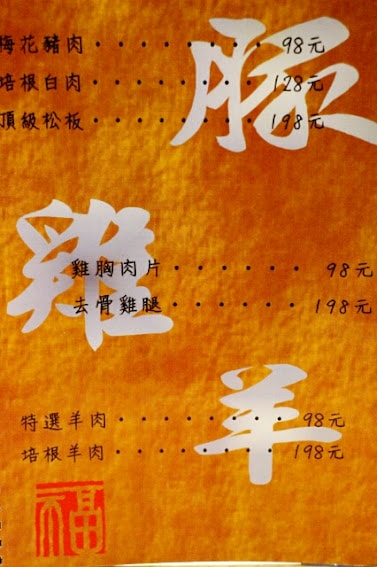 豚
梅花豬肉........98元
培根白肉........128元
頂級松板........198元
雞
雞胸肉片......98元
去骨雞腿......198元
羊
特選羊肉........98元
培根羊肉........198元
福